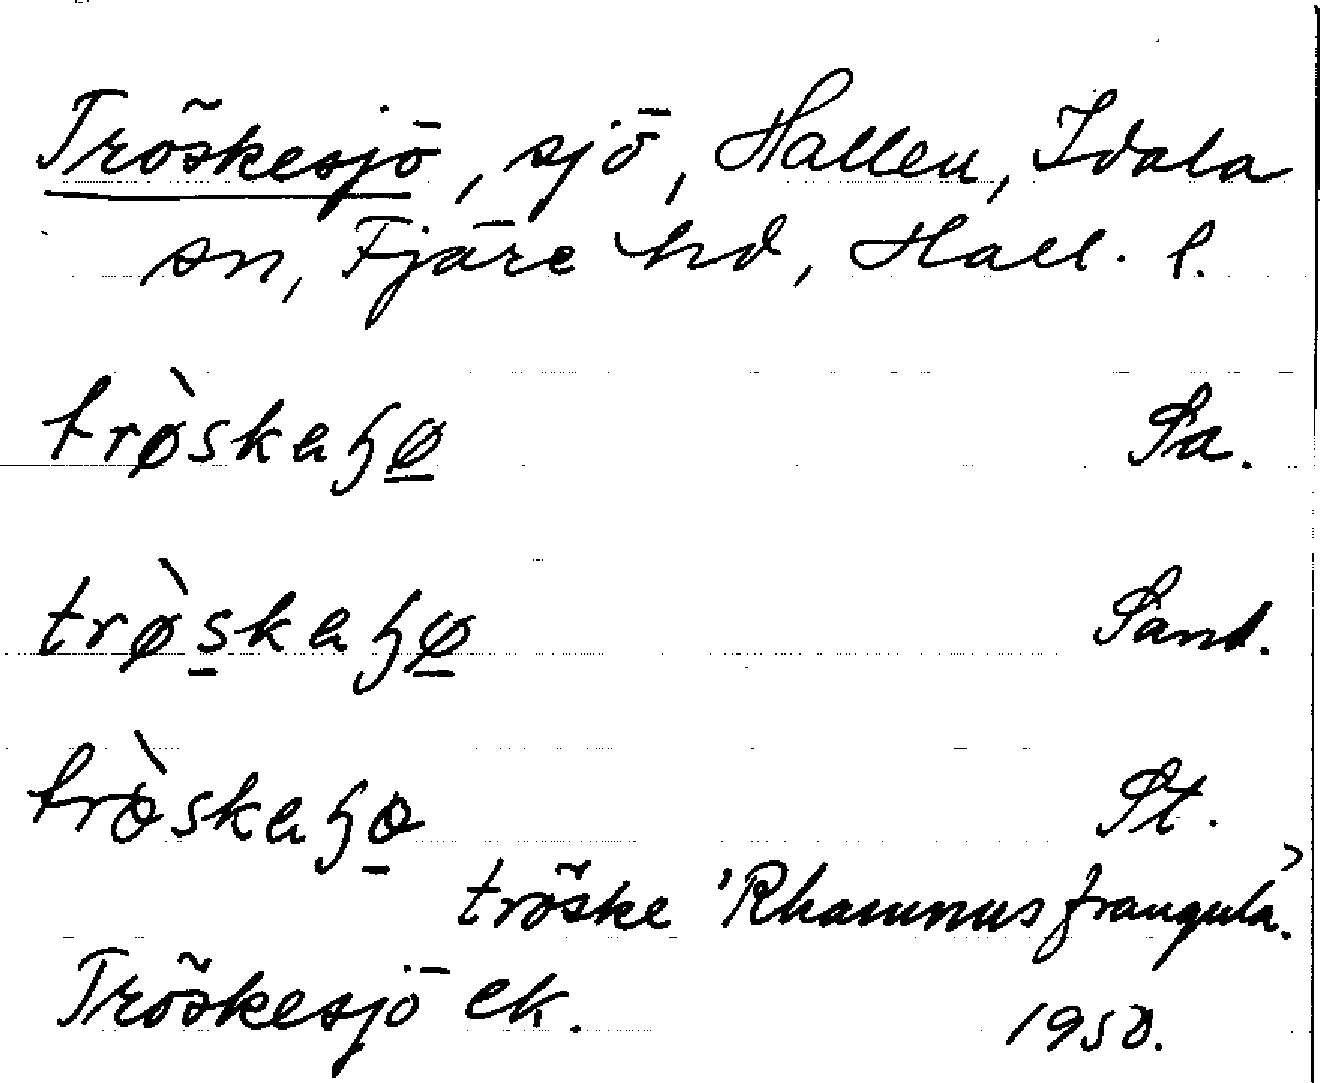 Tröskesjö, sjö, Hallen, Idala
sn, Fjäre hd, Hall. l.
trø̀skaɧø Sa.
trø̀skaɧø Sand.
trò̵skaɧo̵ St.
tröske 'Rhamnus frangula'.
Tröskesjö ek. 1950.